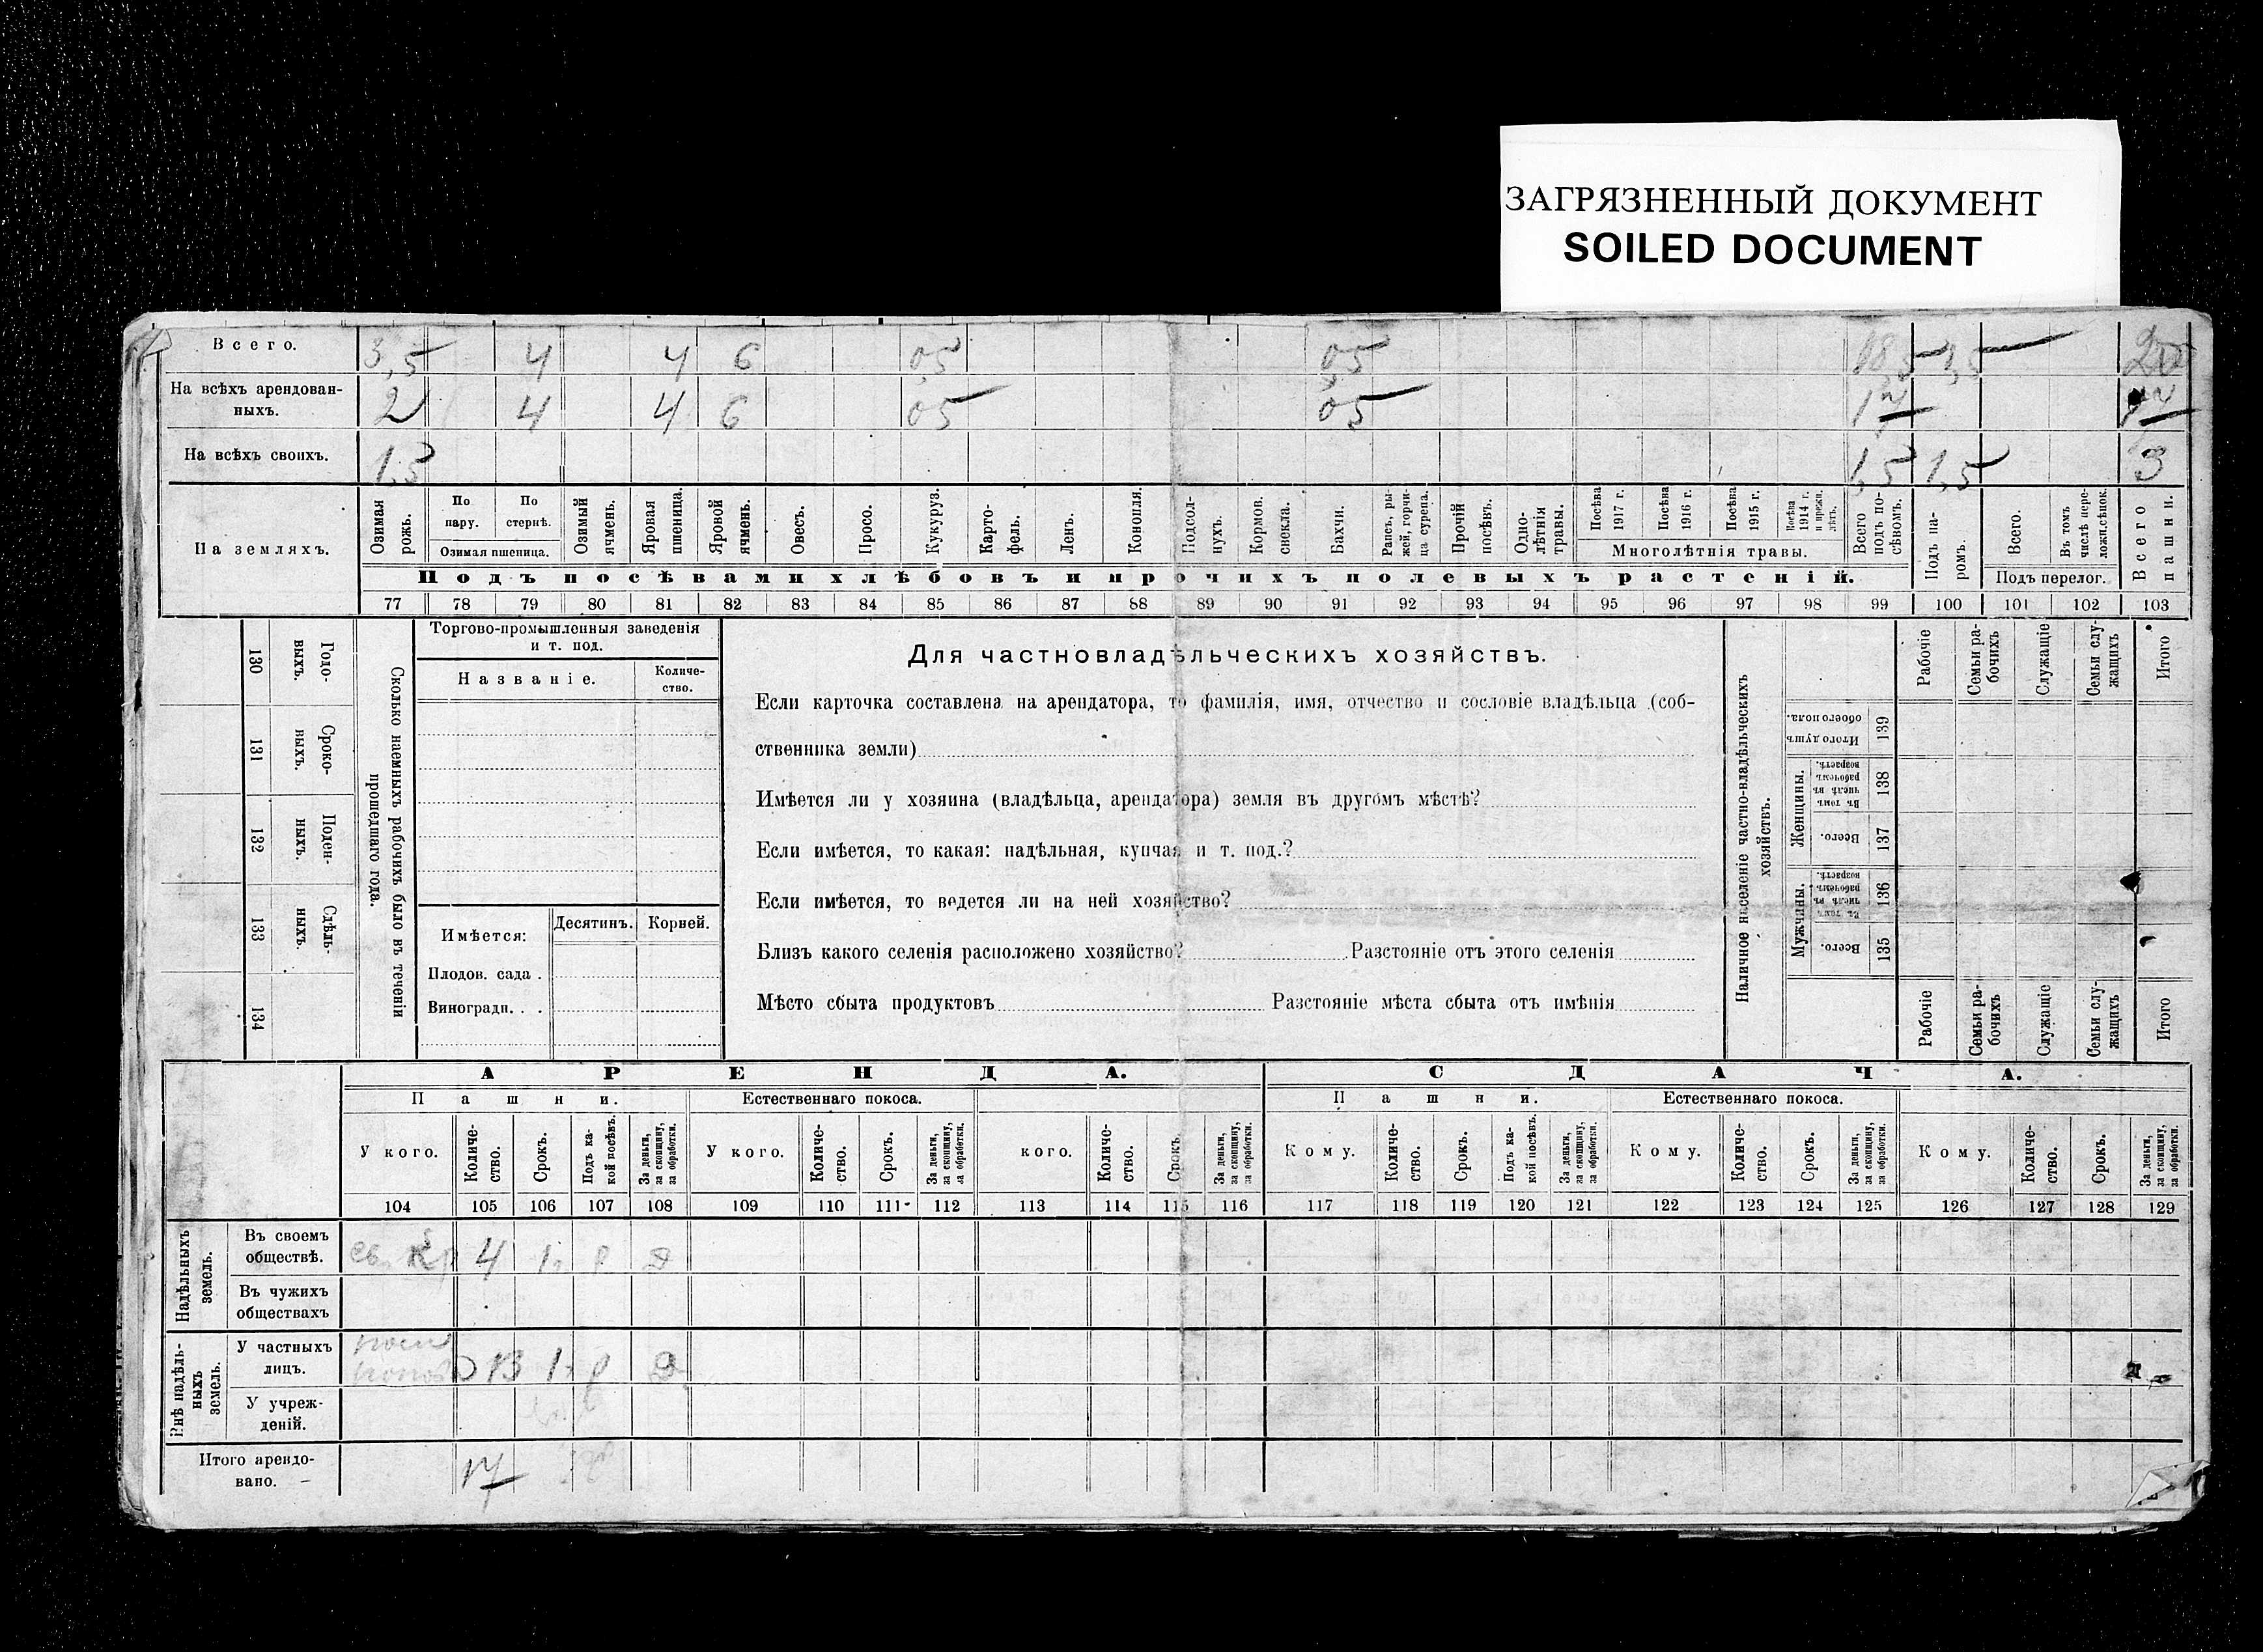 ЗАГРЯЗНЕННЫЙ ДОКУМЕНТ
SOILED DOCUMENT
Всего. 3,5 4 4 6 05 05 18,5 1,5 20
На всѣхъ арендован-
ныхъ. 2 4 4 6 05 05 17 17
На всѣхъ своихъ. 1,5 1,5 1,5 3
На земляхъ.
Озимая рожь.
По пару.
По стернѣ.
Озимая пшеница.
Озимый ячмень.
Яровая пшеница.
Яровой ячмень.
Овесъ.
Просо.
Кукуруз.
Карто-
фель.
Ленъ.
Конопля.
Подсол-
нухъ.
Кормов. свекла.
Бахчи.
Рапсъ, ры-
жей, горчи-
ца сурепа.
Прочій посѣвъ.
Одно-
лѣтнія травы.
Посѣва 1917 г.
Посѣва 1916 г.
Посѣва 1915 г.
Посѣва 1914 г. и прежн. лѣтъ.
Многолѣтнія травы.
Всего подъ по-
сѣвомъ.
Подъ па-
ромъ.
Всего.
Въ томъ числѣ пере-
ложн.сѣнок.
Подъ перелог.
Всего пашни.
Подъ посѣвами хлѣбовъ и прочихъ полевыхъ растеній.
77 78 79 80 81 82 83 84 85 86 87 88 89 90 91 92 93 94 95 96 97 98 99 100 101 102 103
130 Годо-
выхъ.
131 Сроко-
ныхъ.
132 Поден-
ныхъ.
133 Сдѣль-
ныхъ.
134
Сколько наемныхъ рабочихъ было въ теченіи
прошедшаго года.
Торгово-промышленныя заведенія
и т. под.
Названіе.
Количе-
ство.
Имѣется:
Десятинъ. Корней.
Плодов. сада .
Виноградн. . .
Для частновладѣльческихъ хозяйствъ.
Если карточка составлена на арендатора, то фамилія, имя, отчество и сословіе владѣльца (соб-
ственника земли)
Имѣется ли у хозяина (владѣльца, арендатора) земля въ другомъ мѣстѣ?
Если имѣется, то какая: надѣльная, купчая и т. под.?
Если имѣется, то ведется ли на ней хозяйство?
Близъ какого селенія расположено хозяйство? Разстояніе отъ этого селенія
Мѣсто сбыта продуктовъ Разстояніе мѣста сбыта отъ имѣнія
Наличное населеніе частно-владѣльческихъ
хозяйствъ.
Рабочіе
Семьи ра-
бочихъ
Служащіе
Семьи слу-
жащихъ
Итого
139 Итого душъ обоего пола.
Женщины.
138 Въ томъ числѣ въ рабочемъ возрастѣ.
137 Всего.
Мужчины.
136 Въ томъ числѣ въ рабочемъ возрастѣ.
135 Всего.
Рабочіе
Семьи ра-
бочихъ
Служащіе
Семьи слу-
жащихъ
Итого
АРЕНДА. СДАЧА.
Пашни. Естественнаго покоса. Пашни. Естественнаго покоса.
У кого.
Количе-
ство.
Срокъ.
Подъ ка-
кой посѣвъ.
За деньги, за скопщину, за обработки.
У кого.
Количе-
ство.
Срокъ.
За деньги, за скопщину, за обработки.
кого.
Количе-
ство.
Срокъ.
За деньги, за скопщину, за обработки.
Кому.
Количе-
ство.
Срокъ.
Подъ ка-
кой посѣвъ.
За деньги, за скопщину, за обработки.
Кому.
Количе-
ство.
Срокъ.
За деньги, за скопщину, за обработки.
Кому.
Количе-
ство.
Срокъ.
За деньги, за скопщину, за обработки.
104 105 106 107 108 109 110 111 112 113 114 115 116 117 118 119 120 121 122 123 124 125 126 127 128 129
Надѣльныхъ
земель.
Въ своемъ
обществѣ. 4 1
Въ чужихъ
обществахъ
Внѣ надѣль-
ныхъ
земель.
У частныхъ
лицъ. 13 1
У учреж-
деній.
Итого арендо-
вано. 17